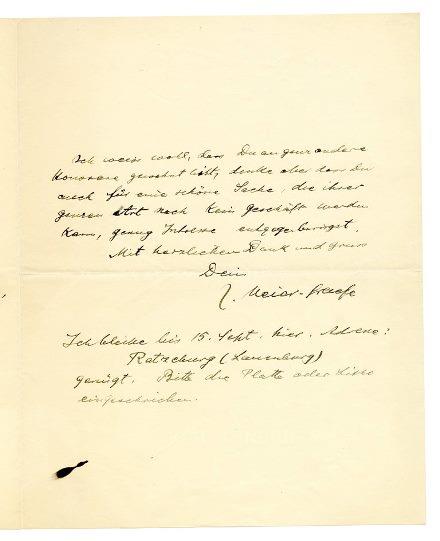 Ich weiss wohl, dass Du an ganz andere
Honorare gewohnt bist, denke aber dass Du
auch für eine schöne Sache, die ihrer
ganzen Art nach kein Geschäft werden
kann, genug Interesse entgegenbringst.
Mit herzlichem Dank und Gruss
Dein
J. Meier-Graefe
Ich bleibe bis 15. Sept. hier. Adresse:
Ratzeburg (Lauenburg)
genügt. Bitte die Platte oder
eingeschrieben.